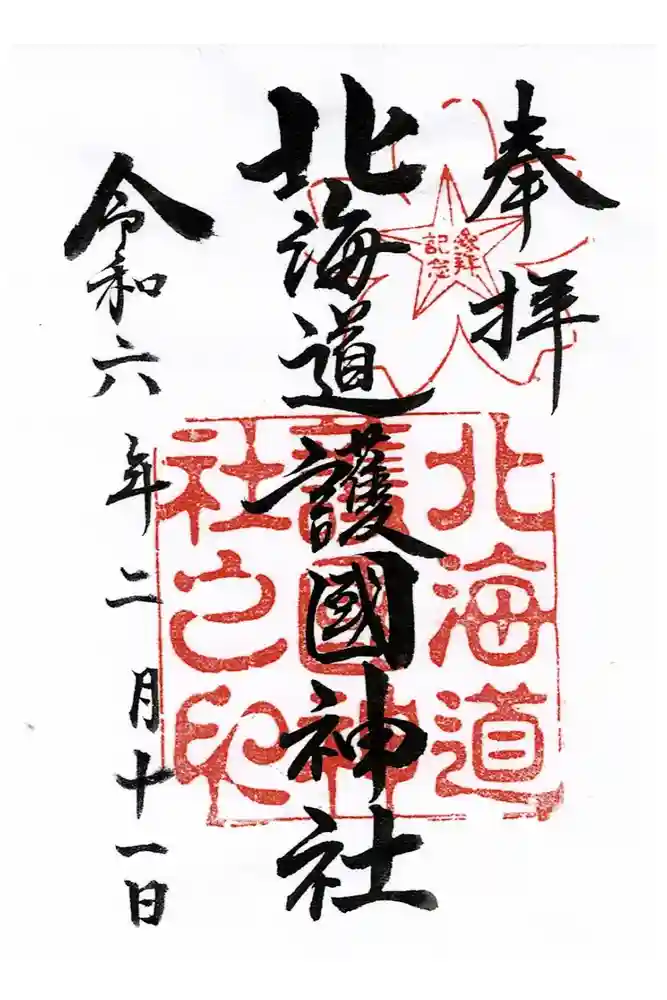 奉拝
参拝
記念
北海道護國神社
北海道
護國神
社之印
令和六年二月十一日